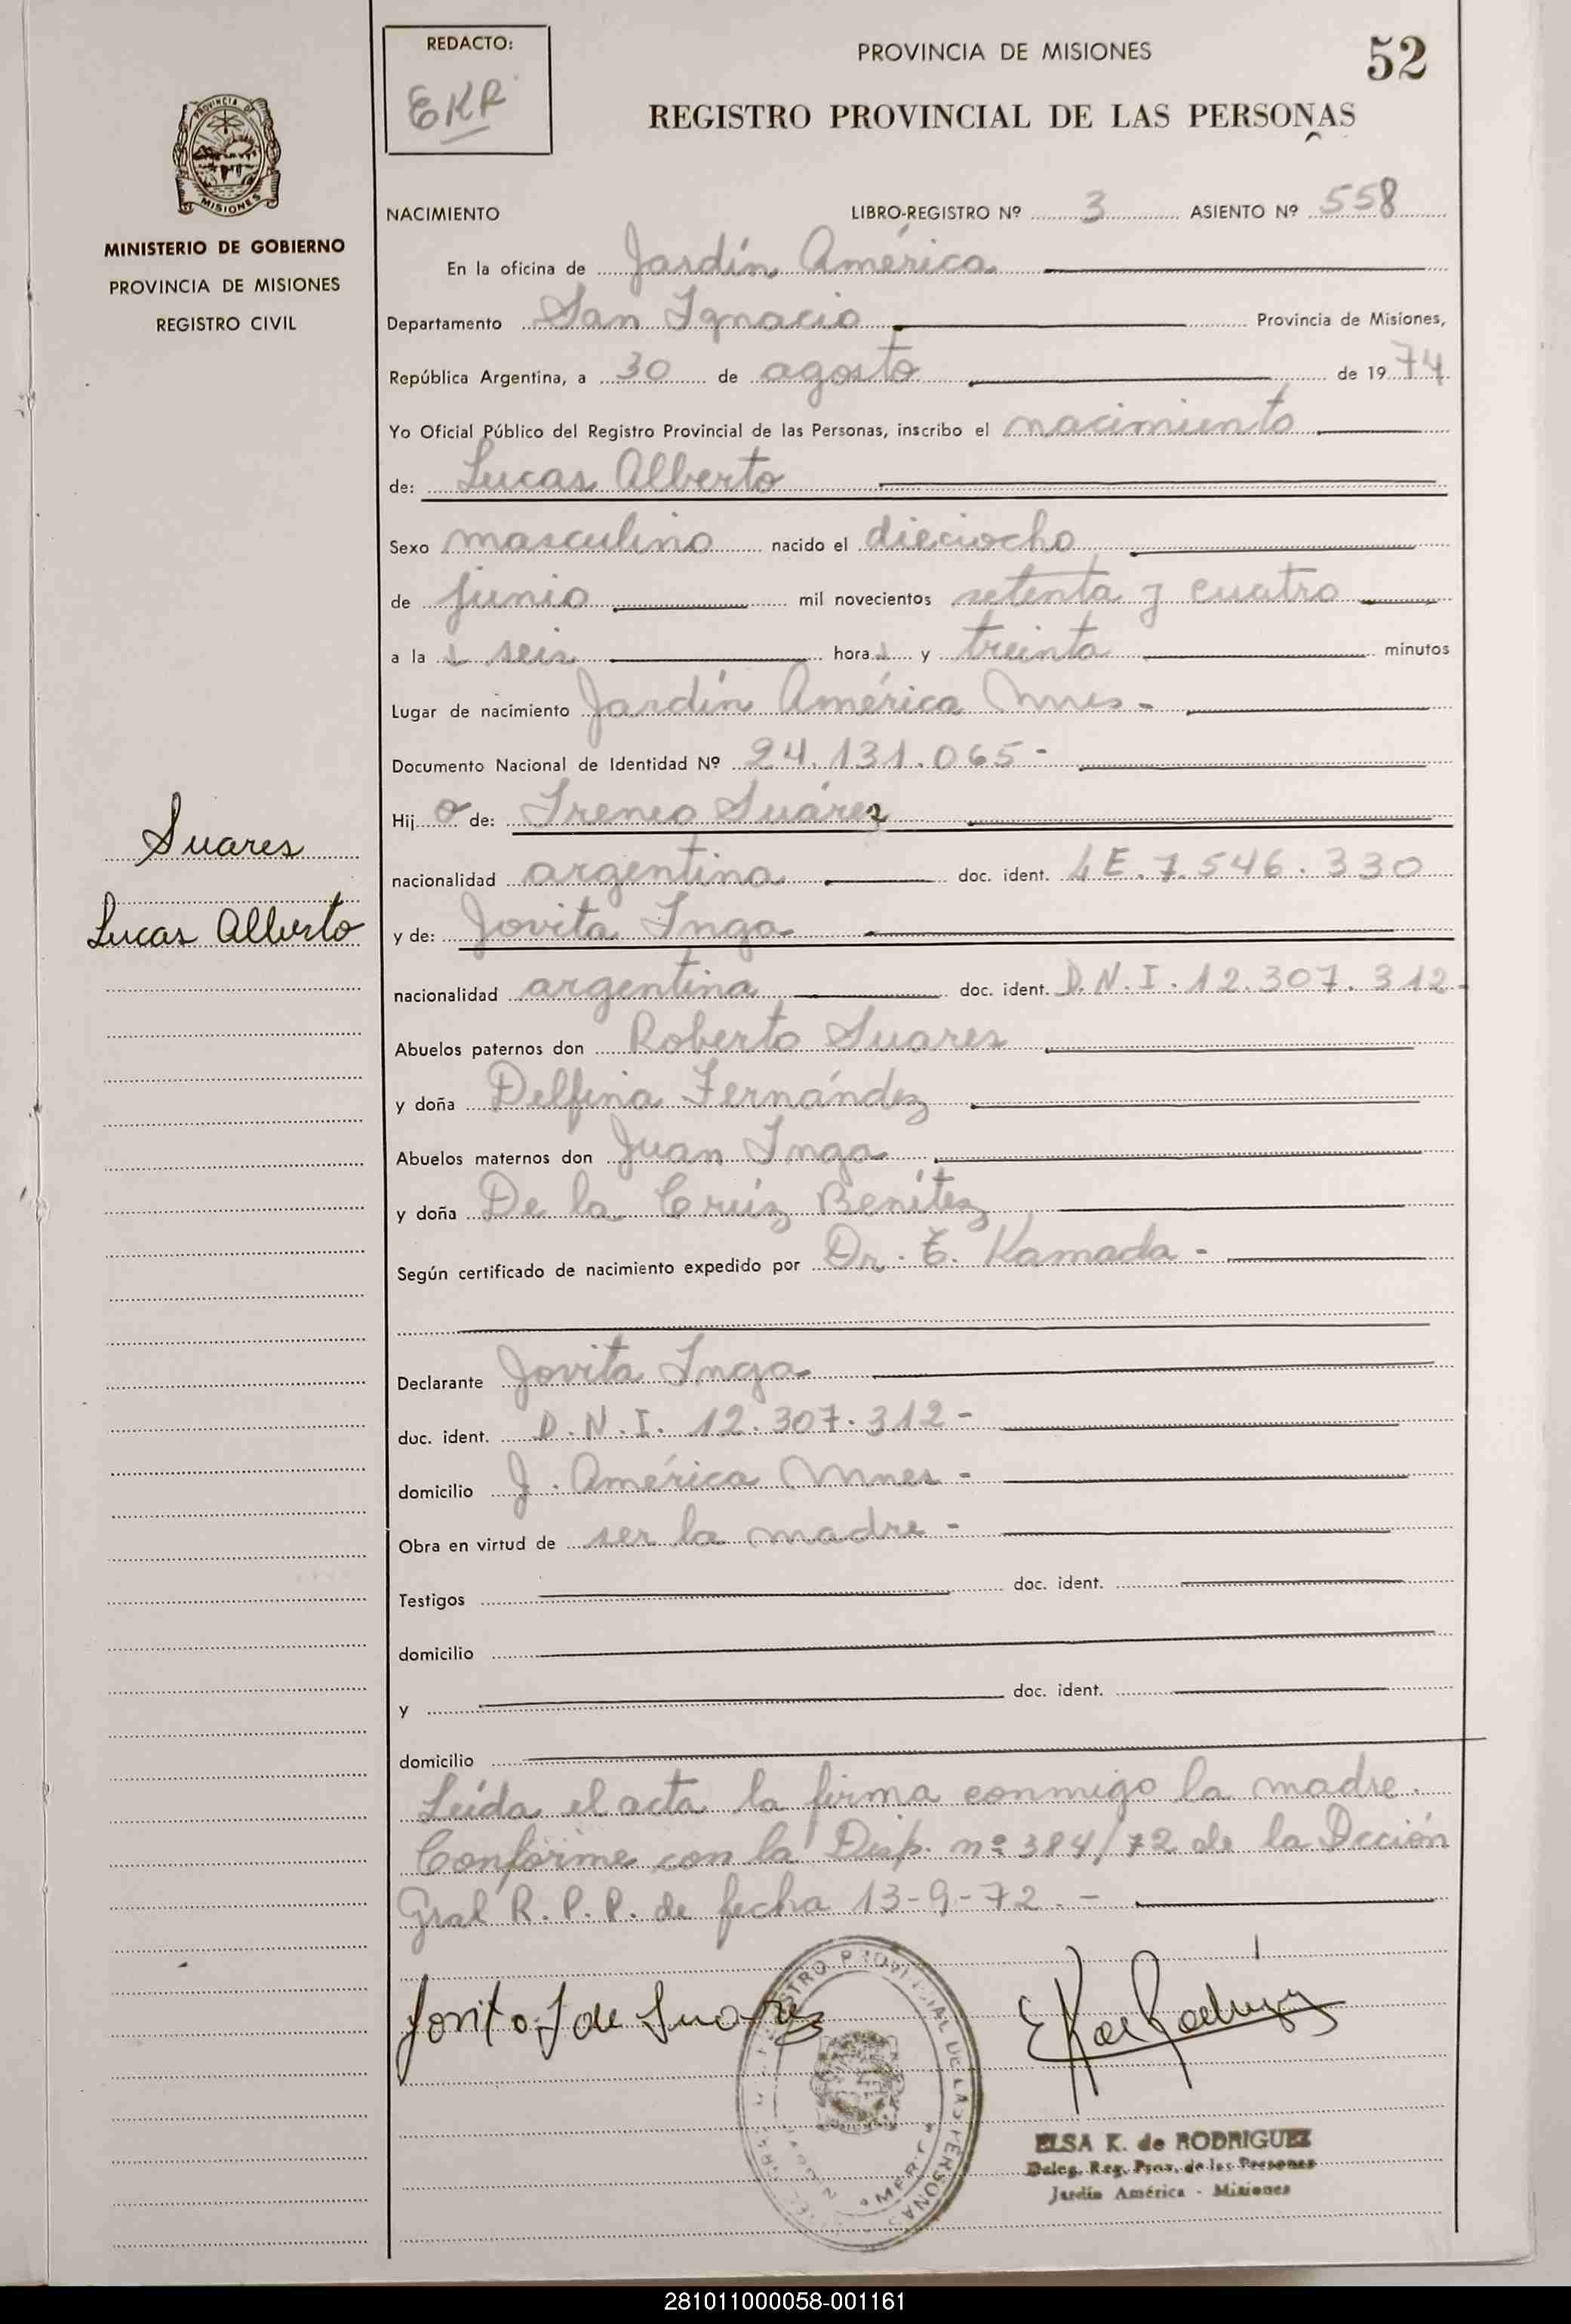 REDACTO:
EKR
PROVINCIA DE MISIONES
52
REGISTRO PROVINCIAL DE LAS PERSONAS
PROVINCIA DE
MISIONES
MINISTERIO DE GOBIERNO
PROVINCIA DE MISIONES
REGISTRO CIVIL
NACIMIENTO LIBRO-REGISTRO Nº 3 ASIENTO Nº 558
En la oficina de Jardín América
Departamento San Ignacio Provincia de Misiones,
República Argentina, a 30 de agosto de 1974
Yo Oficial Público del Registro Provincial de las Personas, inscribo el nacimiento
de: Lucas Alberto
Sexo masculino nacido el dieciocho
de junio mil novecientos setenta y cuatro
a la s seis hora s y treinta minutos
Lugar de nacimiento Jardín América Mnes -
Documento Nacional de Identidad Nº 24.131.065-
Hij o de: Ireneo Suárez
Suares
nacionalidad argentina doc. ident. LE. 7.546.330
Lucas Alberto
y de: Jovita Inga
nacionalidad argentina doc. ident. D.N.I. 12.307.312-
Abuelos paternos don Roberto Suares
y doña Delfina Fernández
Abuelos maternos don Juan Inga
y doña De la Crúz Benítez
Según certificado de nacimiento expedido por Dr. E. Kamada -
Declarante Jovita Inga
doc. ident. D.N.I. 12.307.312-
domicilio J. América Mnes -
Obra en virtud de ser la madre -
Testigos doc. ident.
domicilio
y doc. ident.
domicilio
Leída el acta la firma conmigo la madre.
Conforme con la Disp. nº 384/72 de la Dcción
Gral R.P.P. de fecha 13-9-72. -
Jovita I de Suarez
E K de Rodriguez
REGISTRO PROVINCIAL DE LAS PERSONAS
ELSA K. de RODRIGUEZ
Deleg. Reg. Prov. de las Personas
Jardín América - Misiones
281011000058-001161